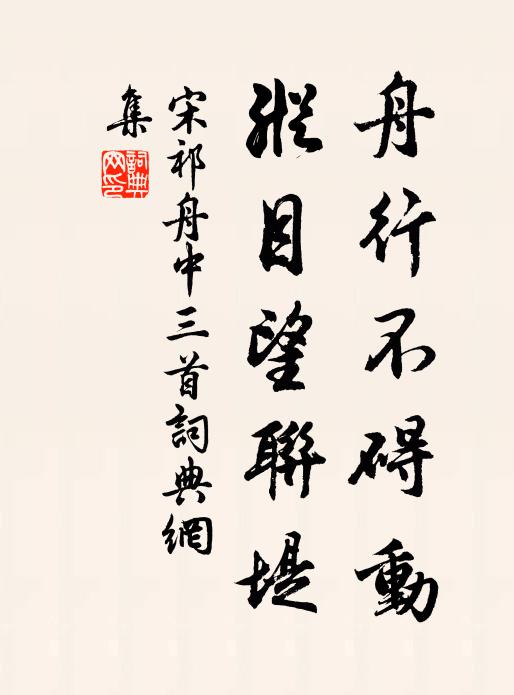 舟行不碍動
縱目望聯堤
宋祁舟中三首詞典網
集
詞典
网印